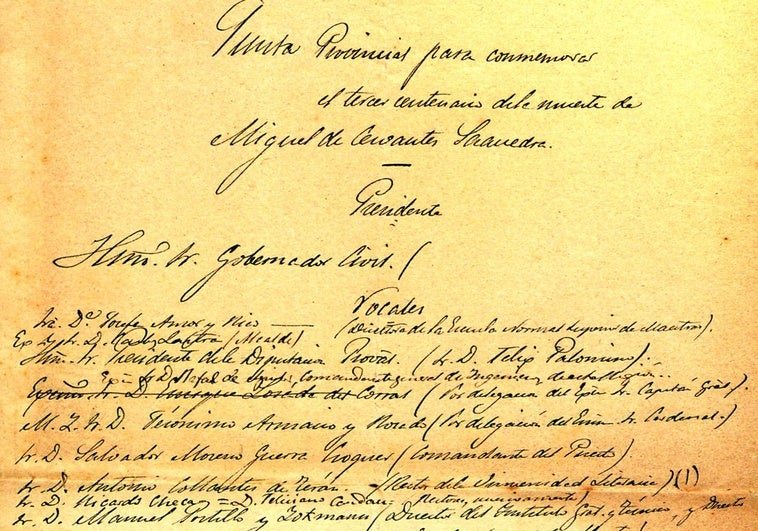 Junta Provincial para conmemorar
el tercer centenario de la muerte de
Miguel de Cervantes Saavedra.
Presidente
Iltmo. Sr. Gobernador Civil.
Vocales
Sra. Da. Josefa Amor y Rico (Directora de la Escuela Normal Superior de Maestras).
(Alcalde)
Iltmo. Sr. Presidente de la Diputación Proval. (Sr. D. Felix Palomino).
D. Rafael de Comandante general de Ingenieros,
Excmo. Sr. D. Enrique (Por delegación del Sr. Capitán Gral).
M. I. Sr. D. Jerónimo Armario y Rosado (Por delegación del Emmo. Sr. Cardenal.)
Sr. D. Salvador Moreno Guerra (Comandante del Puerto).
Sr. D. Antonio Collantes de Terán (Rector de la Universidad Literaria) (1)
Sr. D. Ricardo Checa = D. Feliciano Candau =
Sr. D. Manuel Portillo y (Director del Instituto Gral. y Técnico, y Director